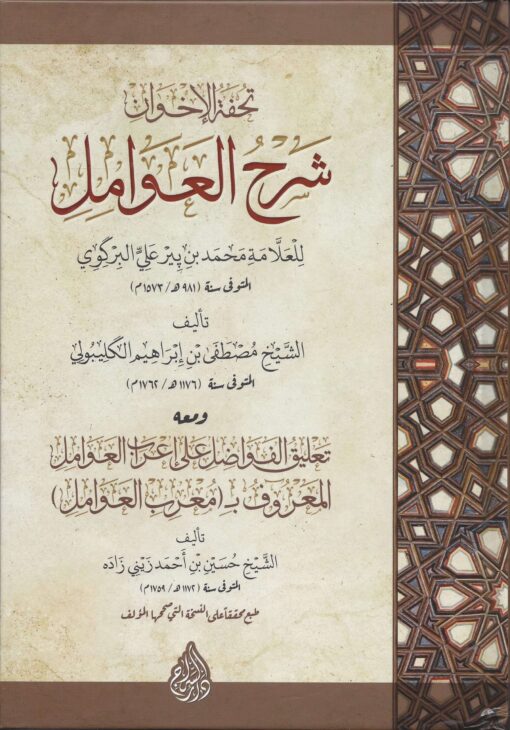 تحفة الإخوان
شَرْحُ العَوَامِلِ
لِلْعَلَّامَةِ مُحَمَّد بن پِيْر عَلِيٍّ البِرْكَوِي
المتوفى سنة (٩٨١ هـ/ ١٥٧٣م)
تأليف
الشَّيْخ مُصْطَفَى بْن إِبْرَاهِيم الكَلِيبُولي
المتوفى سنة (١١٧٦ هـ/ ١٧٦٢م)
ومعه
تعليق الفواضل على إعراب العوامل
المَعْرُوف بـ (مُعْرِب العَوَامِل)
تأليف
الشَّيْخ حُسَيْن بْن أَحْمَد زَيْنِي زَادَه
المتوفى سنة (١١٧٢ هـ/ ١٧٥٩م)
طبع محققا على النسخة التي صححها المؤلف
دار السراج